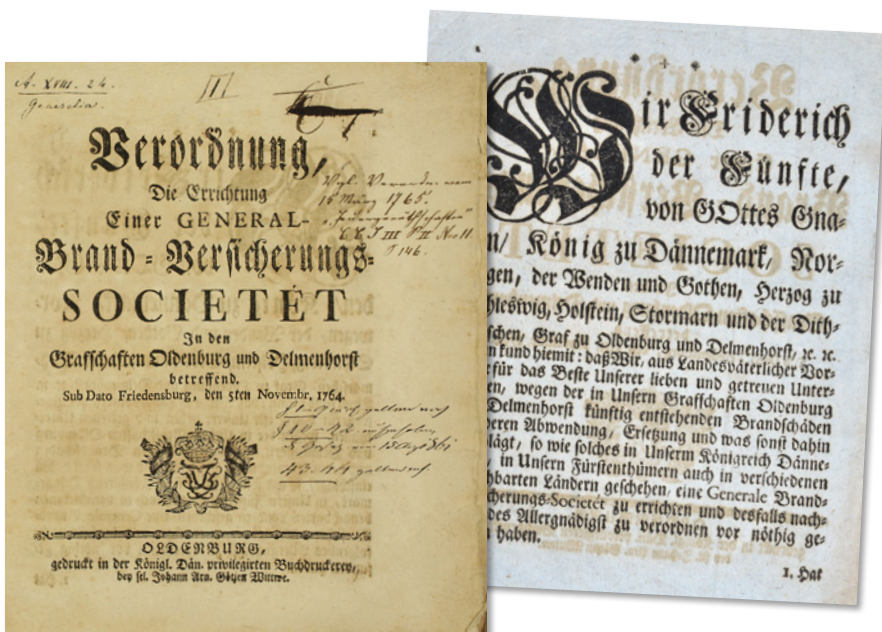 A. XVIII. 24.
Generalia.
III
Verordnung,
Die Errichtung
Einer GENERAL-
Brand = Versicherungs=
SOCIETÉT
In den
Graffschaften Oldenburg und Delmenhorst
betreffend.
Sub Dato Friedensburg, den 5ten Novembr. 1764.
Vgl. Verordn. vom
15 März 1765.
§ 146.
OLDENBURG,
gedruckt in der Königl. Dän. privilegirten Buchdruckerey,
bey sel. Johann Arn. Götjen Wittwe.
Wir Friderich
der Fünfte,
von GOttes Gna-
n/ König zu Dännemark, Nor-
gen, der Wenden und Gothen, Herzog zu
hleswig, Holstein, Stormarn und der Dith-
schen, Graf zu Oldenburg und Delmenhorst, ꝛc. ꝛc.
n kund hiemit: daß Wir, aus Landesväterlicher Vor-
für das Beste Unserer lieben und getreuen Unter-
en, wegen der in Unsern Graffschaften Oldenburg
Delmenhorst künftig entstehenden Brandschäden
eren Abwendung, Ersetzung und was sonst dahin
lägt, so wie solches in Unserm Königreich Dänne-
, in Unsern Fürstenthümern auch in verschiedenen
hbarten Ländern geschehen, eine Generale Brand-
cherungs-Societét zu errichten und desfalls nach-
des Allergnädigst zu verordnen vor nöthig ge-
n haben.
1. Hat